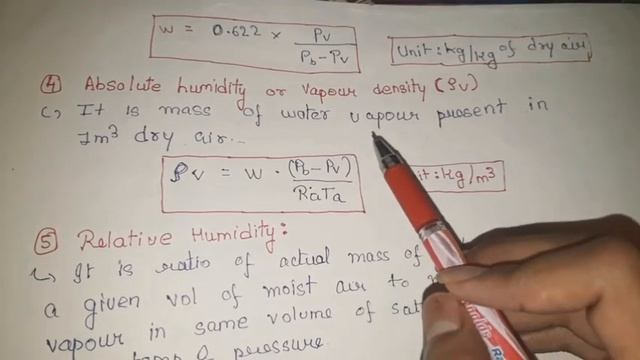 W = 0.622 × Pv / Pb - Pv
Unit: kg/kg of dry air
④ Absolute humidity or vapour density (ρv)
It is mass of water vapour present in
1m³ dry air..
ρv = W . (Pb - Pv) / RaTa
Unit: kg/m³
⑤ Relative Humidity:
It is ratio of actual mass of
a given vol of moist air to
vapour in same volume of
temp & pressure